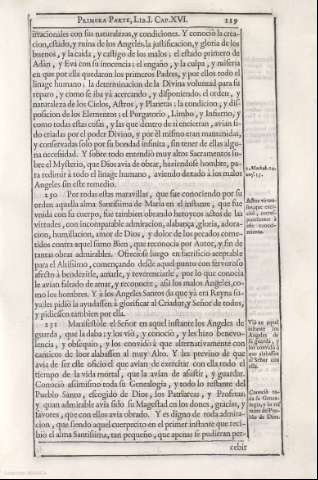 PRIMERA PARTE, LIB. I. CAP. XVI. 229
irracionales con sus naturalezas, y condiciones. Y conociò la crea-
cion, estado, y ruina de los Angeles, la justificacion, y gloria de los
buenos, y la caìda, y castigo de los malos: el estado primero de
Adàn, y Eva con su inocencia: el engaño, y la culpa, y miseria
en que por ella quedaron los primeros Padres, y por ellos todo el
linage humano: la determinacion de la Divina voluntad para su
reparo, y como se iba yà acercando, y disponiendo el orden, y
naturaleza de los Cielos, Astros, y Planetas: la condicion, y dis-
posicion de los Elementos: el Purgatorio, Limbo, y Infierno, y
como todas estas cosas, y las que dentro de sì encierran, avian si-
do criadas por el poder Divino, y por èl mismo eran mantenidas,
y conservadas solo por su bondad infinita, sin tener de ellas algu-
na necessidad. Y sobre todo entendiò muy altos Sacramentos so-
bre el Mysterio, que Dios avia de obrar, haziendose hombre, pa-
ra redimir à todo el linage humano, aviendo dexado à los malos
Angeles sin este remedio.
250 Por todas estas maravillas, que fue conociendo por su
orden aquella Alma Santissima de Maria en el instante, que fue
unida con su cuerpo, fue tambien obrando heroycos actos de las
virtudes, con incomparable admiracion, alabança, gloria, adora-
cion, humillacion, amor de Dios, y dolor de los pecados come-
tidos contra aquel sumo Bien, que reconocia por Autor, y fin de
tantas obras admirables. Ofreciòse luego en sacrificio aceptable
para el Altissimo, començando desde aquel punto con fervoroso
afecto à bendezirle, amarle, y reverenciarle, por lo que conocia
le avian faltado de amar, y reconocer, assi los malos Angeles, co-
mo los hombres. Y à los Angeles Santos (la que yà era Reyna su-
ya) les pidiò la ayudassen à glorificar al Criador, y Señor de todos,
y pidiessen tambien por ella.
251 Manifestòle el Señor en aquel instante los Angeles de
guarda, que la daba: y los viò, y conociò, y les hizo benevo-
lencia, y obsequio, y los convidò à que alternativamente con
canticos de loor alabassen al muy Alto. Y les previno de que
avia de ser este oficio el que avian de exercitar con ella todo el
tiempo de la vida mortal, que la avian de assistir, y guardar.
Conociò assimismo toda su Genealogia, y todo lo restante del
Pueblo Santo, escogido de Dios, los Patriarcas, y Profetas,
y quan admirable avia sido su Magestad en los dones, gracias, y
favores, que con ellos avia obrado. Y es digno de toda admira-
cion, que siendo aquel cuerpecito en el primer instante que reci-
biò el alma Santissima, tan pequeño, que apenas se pudieran per-
cebir